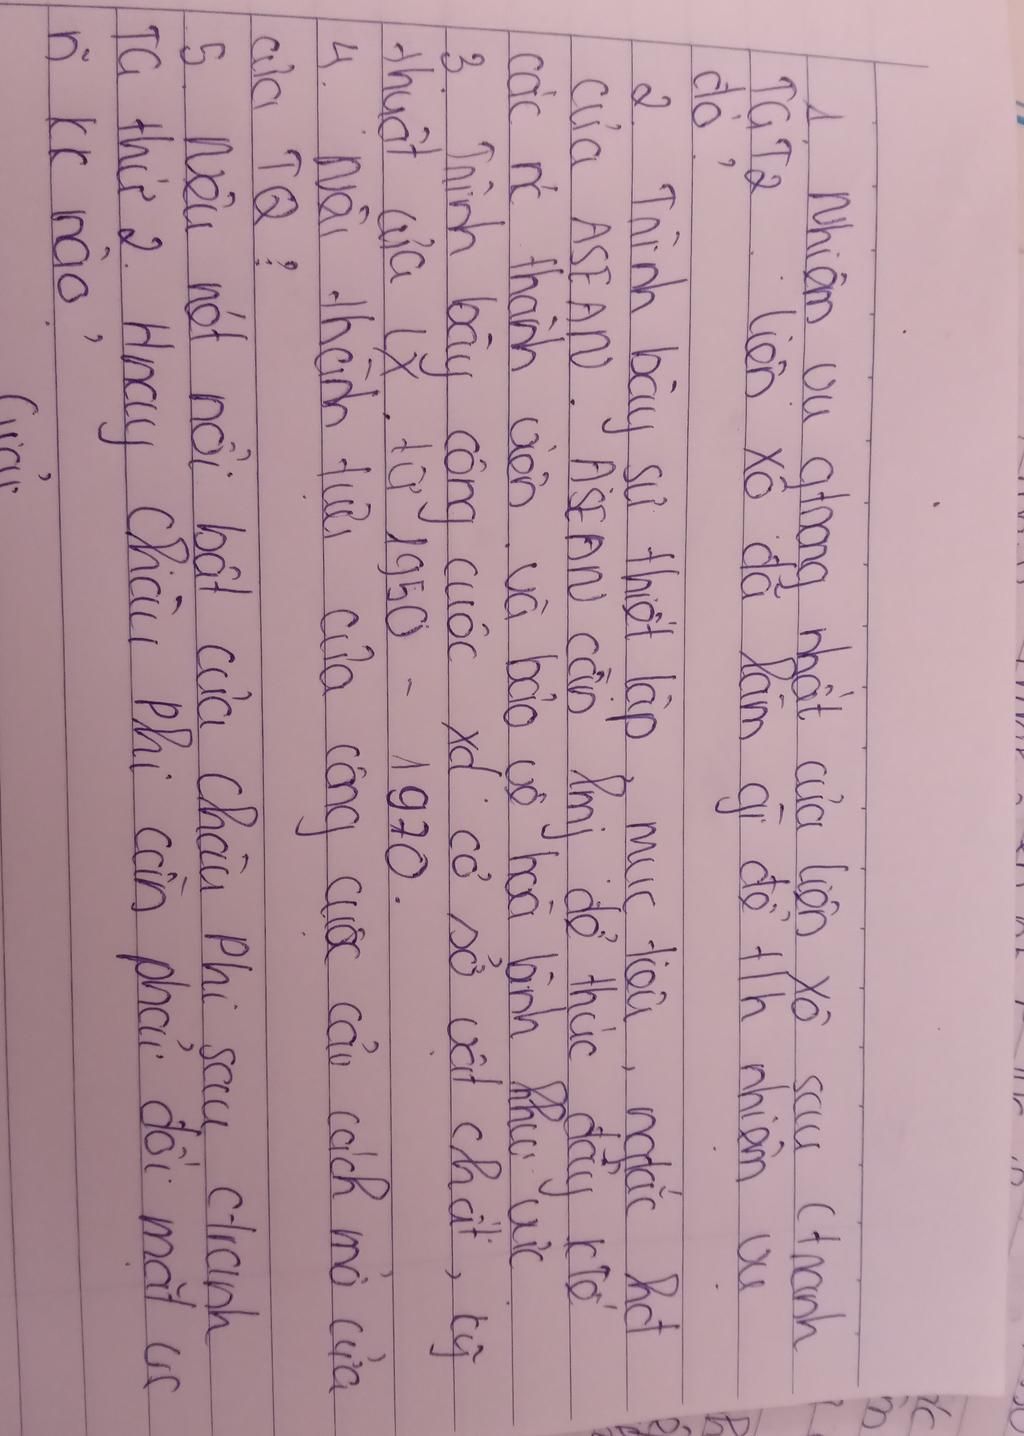 1 Nhiệm vụ qtrong nhất của liên xô sau ctranh
TGT2. liên xô đã làm gì để th nhiệm vụ
đó?
2. Trình bày sự thiết lập, mục tiêu, ngtắc hđ
của ASEAN. ASEAN cần lmj để thúc đẩy kTế
các nc thành viên và bảo vệ hoà bình khu vực
3. Trình bày công cuộc xd cơ sở vật chất, kỹ
thuật của LX từ 1950 - 1970.
4. Nêu thành tựu của công cuộc cải cách mở cửa
của TQ?
5 Nêu nét nổi bật của châu phi sau ctranh
TG thứ 2. Hnay châu phi cần phải đối mặt vs
n~ kk nào?
Giải